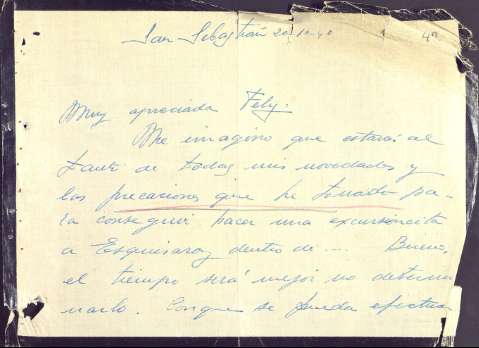 San Sebastián 20-10-40 4ª
Muy apreciada Fely.
Me imagino que estarás al
tanto de todas mis novedades y
las precauciones que he tomado pa-
ra conseguir hacer una excursioncita
a Esquisaroy dentro de ... Bueno,
el tiempo será mejor no determi
narlo. Conque se pueda efectuar